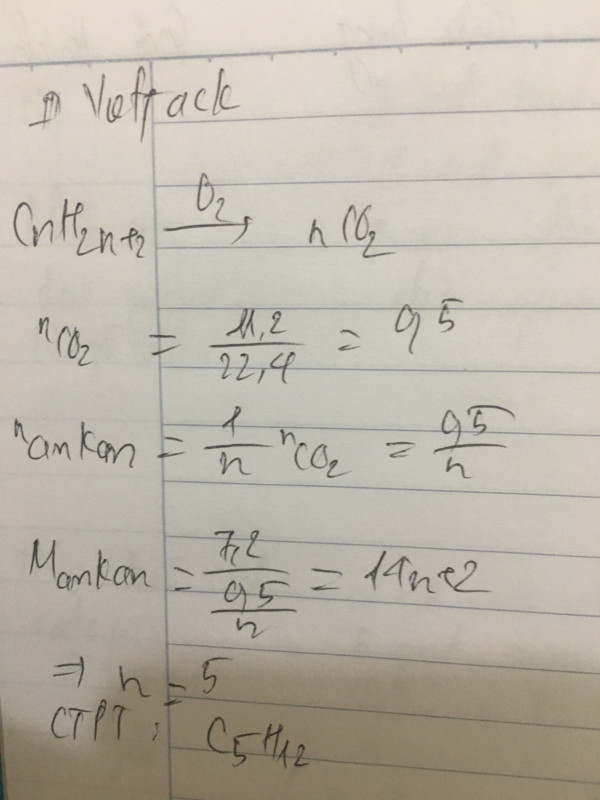 CnH2n+2 O2→ nCO2
nCO2 = 11,2/22,4 = 0,5
nankan = 1/n nCO2 = 0,5/n
Mankan = 7,2/(0,5/n) = 14n+2
⇒ n = 5
CTPT: C5H12